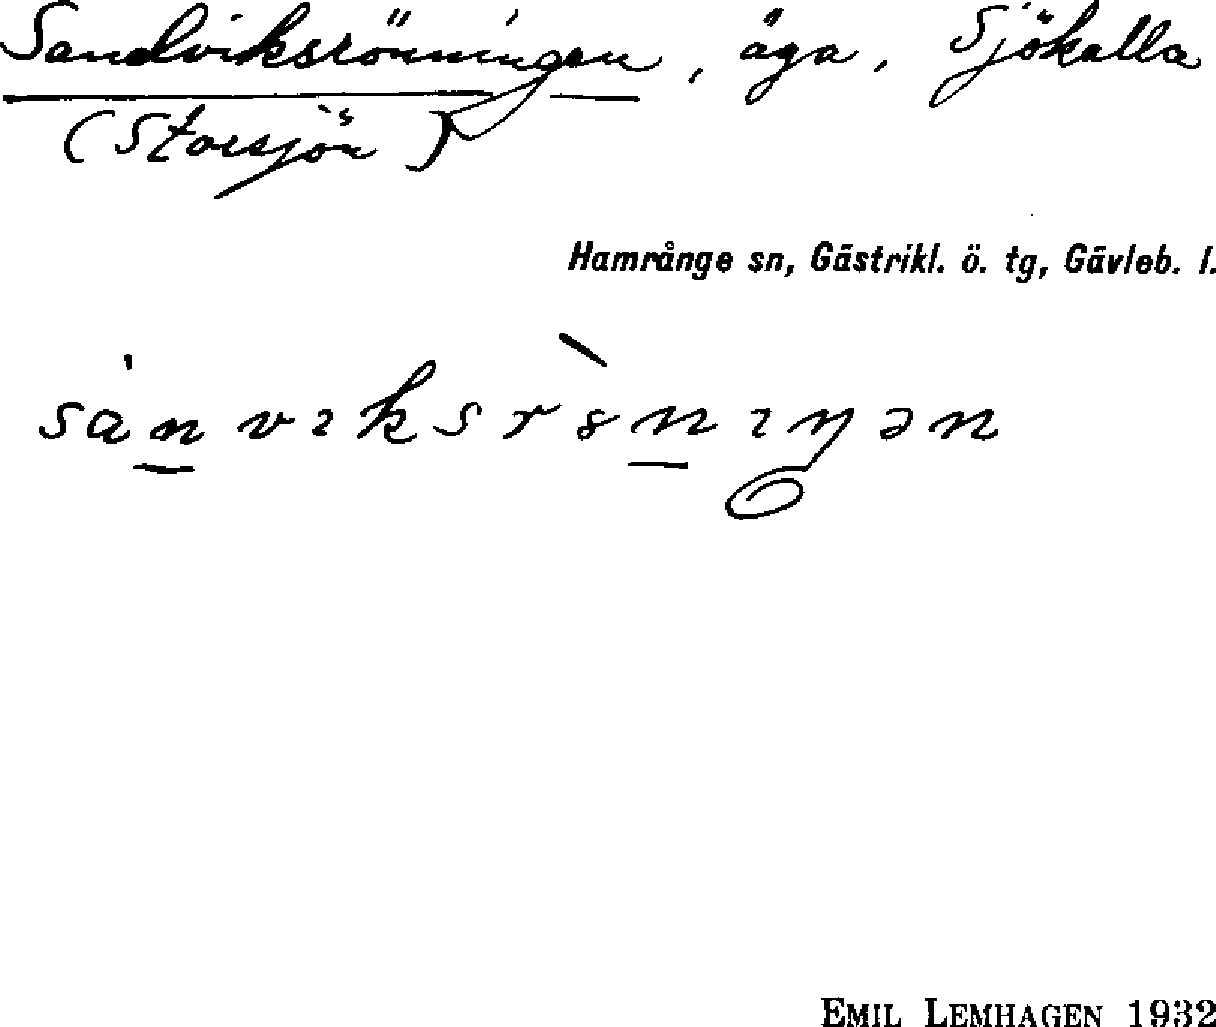 Sandviksrönningen, äga, Sjökalla
(Storsjön)
Hamrånge sn, Gästrikl. ö. tg, Gävleb. l.
sa̍n̲vɩksr8̀n̲ɩŋən
EMIL LEMHAGEN 1932